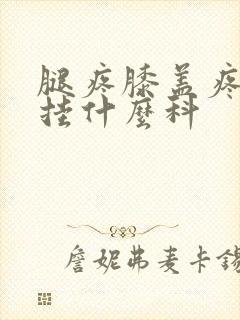 腿疼膝盖疼
挂什麼科
詹妮弗麦卡錫